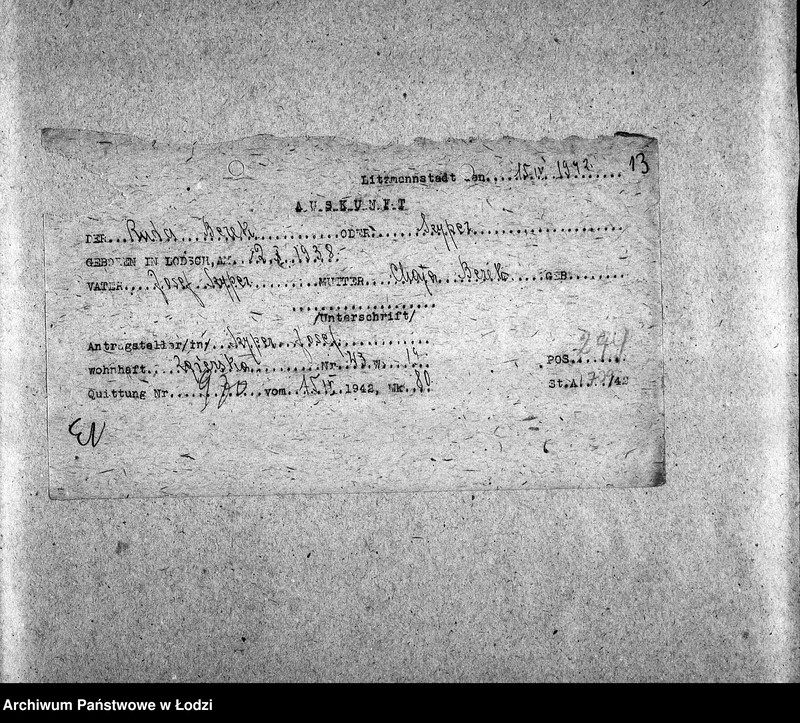 13
Litzmannstadt den....15.IV.1942........
A U S K U N F T
DER...Ruta...Berek............ODER......Szyper....................
GEBOREN IN LODSCH, AM...12.X..1938.
VATER....Josef Szyper.........MUTTER...Chaja Berek.....GEB........
.....................
/Unterschrift/
Antragsteller/in/...Szyper..Josef.............
wohnhaft....Zgierska..........Nr.43.w...14..
POS.......
Quittung Nr.....970....vom..15.IV.1942, Wk.80.
St.A/ /42